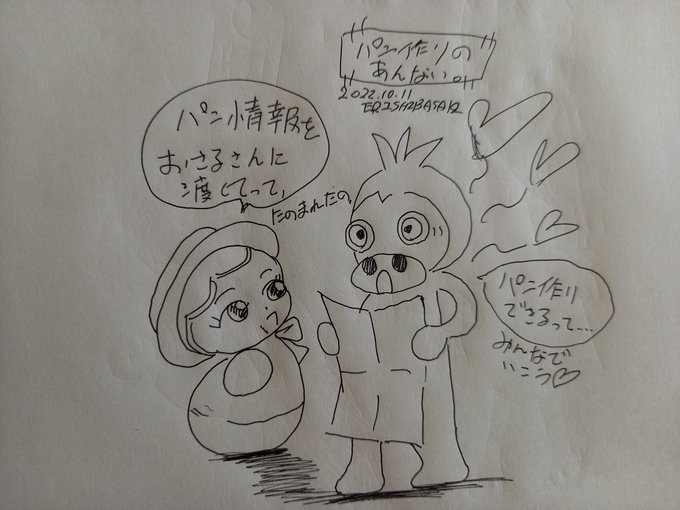 パン作りの
あんない。
2022.10.11
ERISHIBASAKI
パン情報を
おさるさんに
渡してって、
たのまれたの。
パン作り
できるって…
みんなで
いこう♡